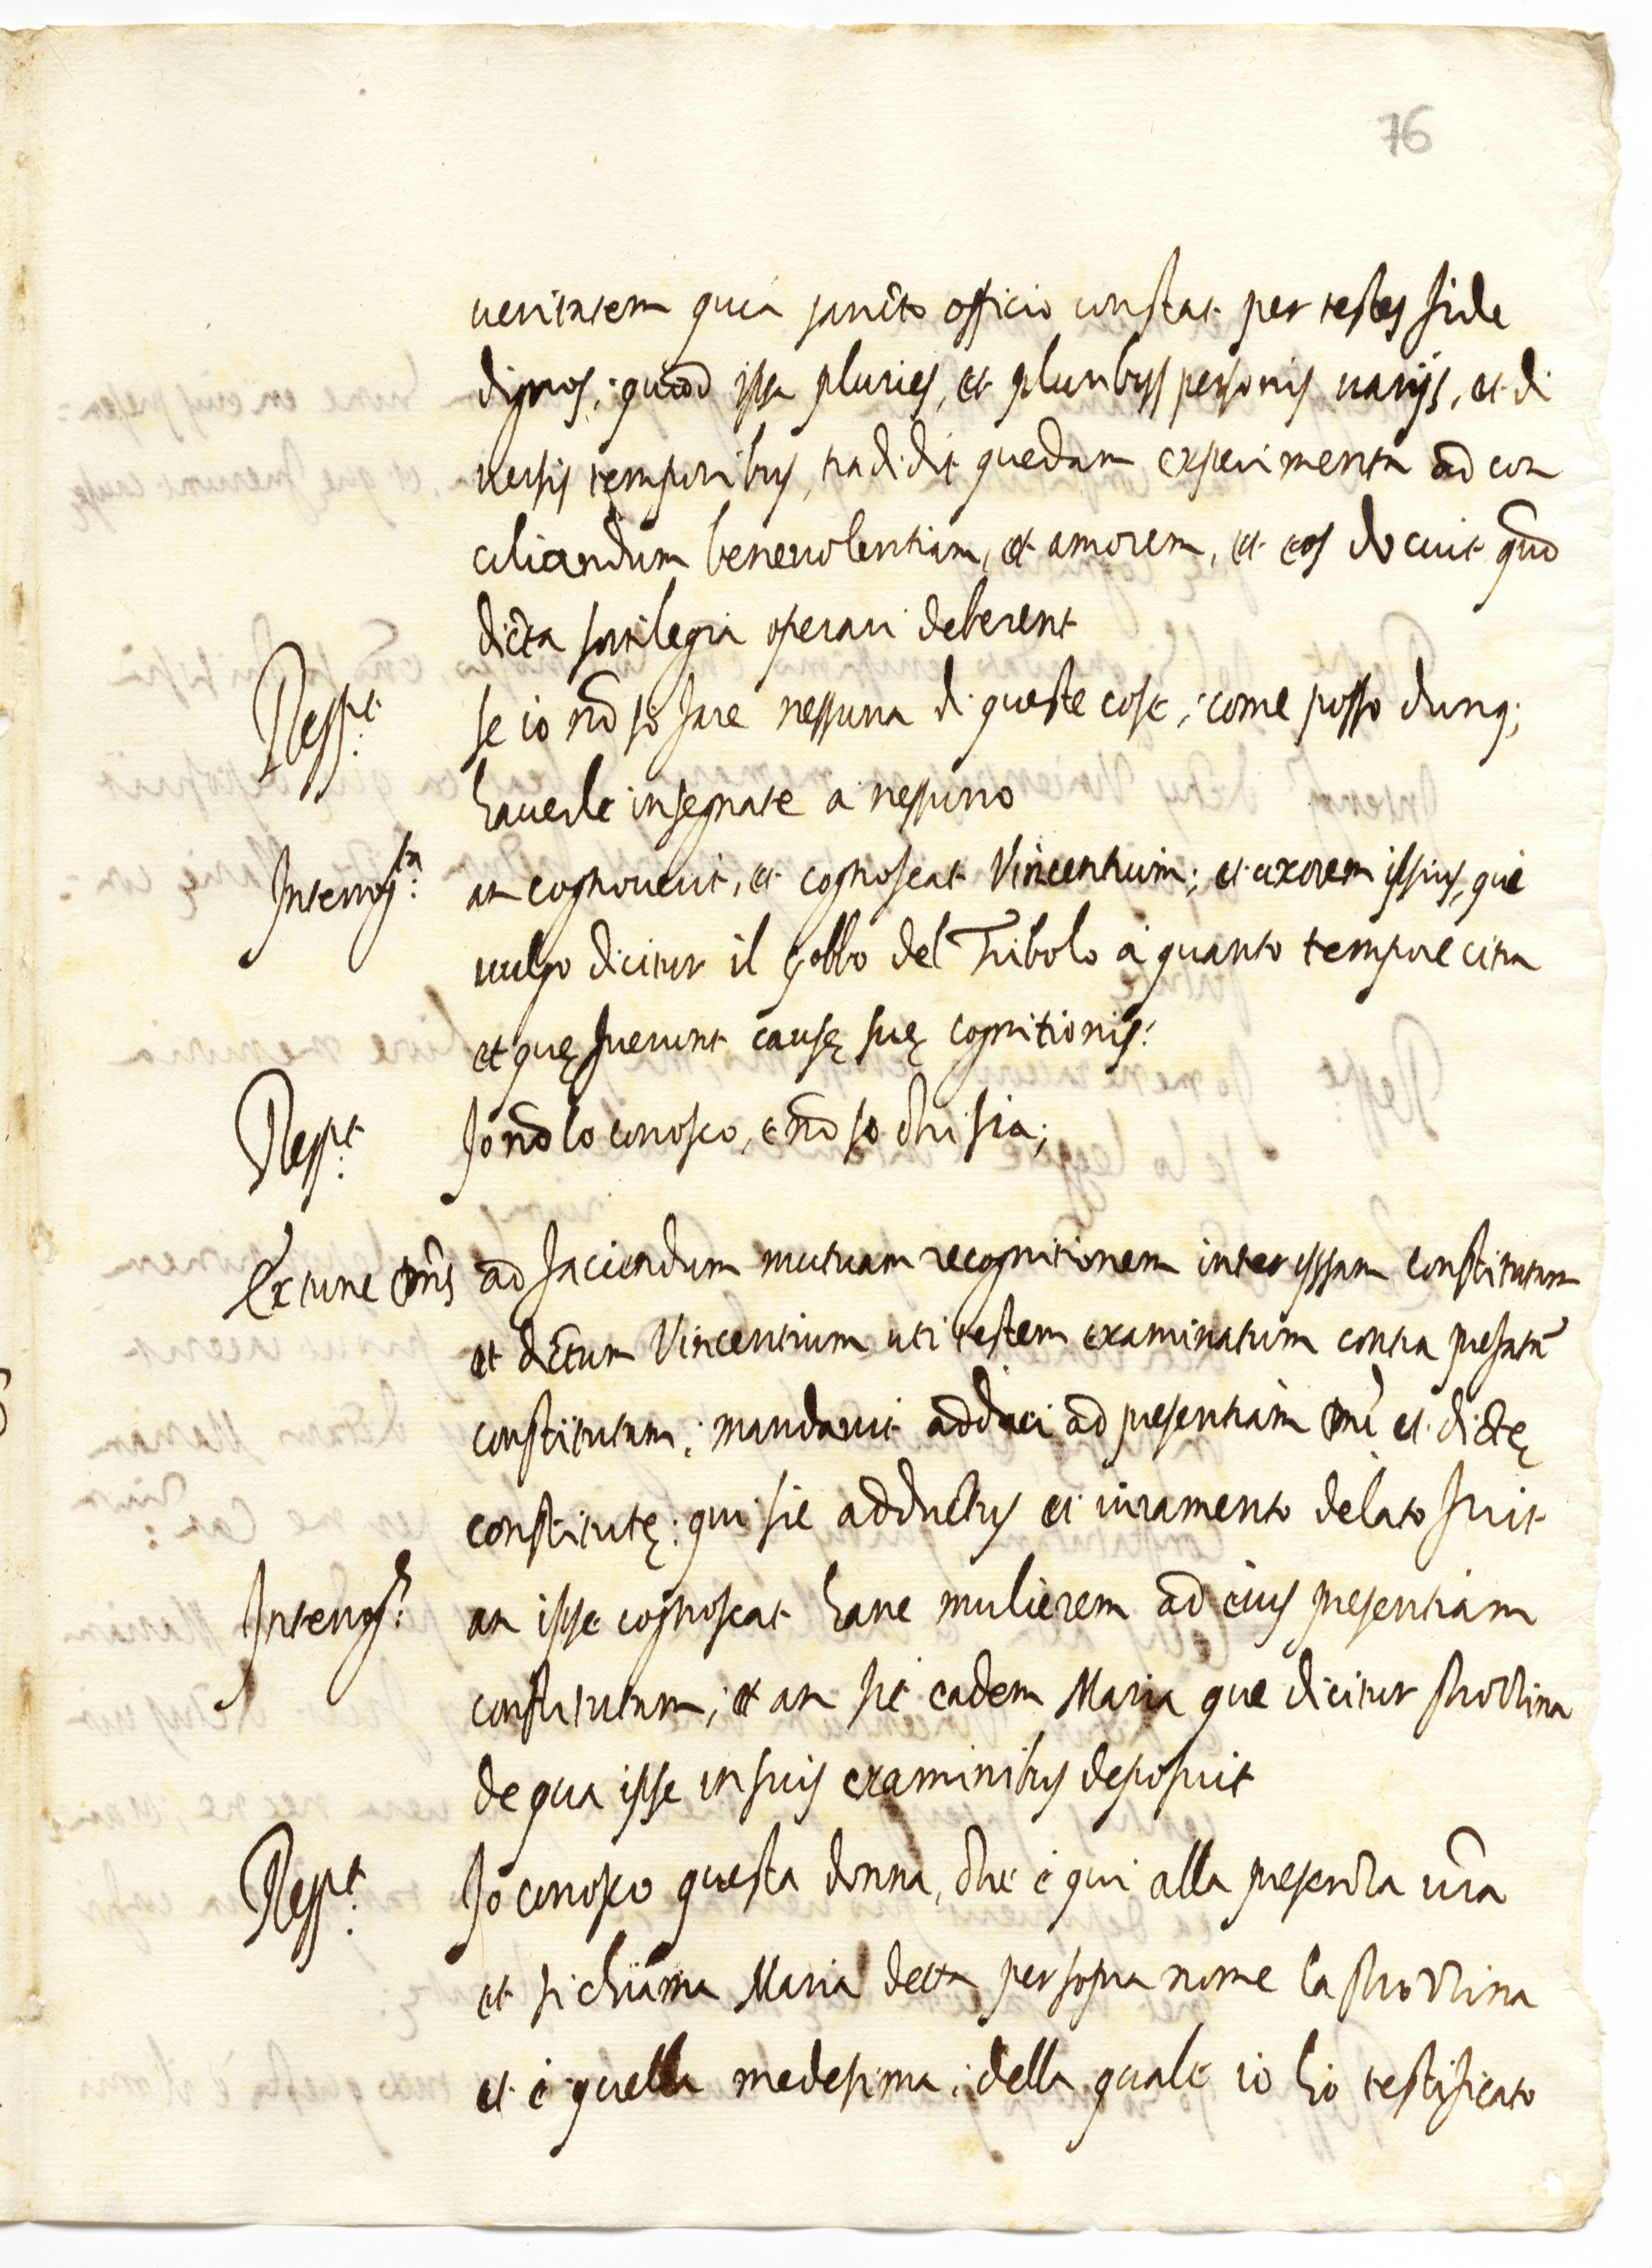 76
ueritatem quia sancto officio constat per testes fide
dignos, quod ipsa pluries, et pluribus personis uarijs, et di
uersis temporibus, tradidit quedam experimenta ad con
ciliandum beneuolentiam, et amorem, et eos docuit quō
dicta sortilegia operari deberent
Resp.t se io nō so fare nessuna di queste cose, come posso dunq;
hauerle insegnate a nessuno
Interrog.ta an cognouerit, et cognoscat Vincentium; et uxorem ipsius, qui
uulgo dicitur il gobbo del Tribolo à quanto tempore citra
et quę fuerunt causę suę cognitionis.
Resp.t Io nō lo conosco, e nō so chi sia;
Ex tunc ad faciendam mutuam recognitionem inter ipsam constitutam
et dictum Vincentium uti testem examinatum contra prefatā
constitutam; mandauit adduci ad presentiam et dictę
constitutę: qui sic adductus ei iuramento delato fuit
Interrog. an ipse cognoscat hanc mulierem ad eius presentiam
constitutam; et an sit eadem Maria que dicitur
de qua ipse in suis examinibus deposuit
Resp.t Io conosco questa donna, che è qui alla presenza vr̄a
et si chiama Maria detta per sopra nome la
et è quella medesima; della quale io hò testificato